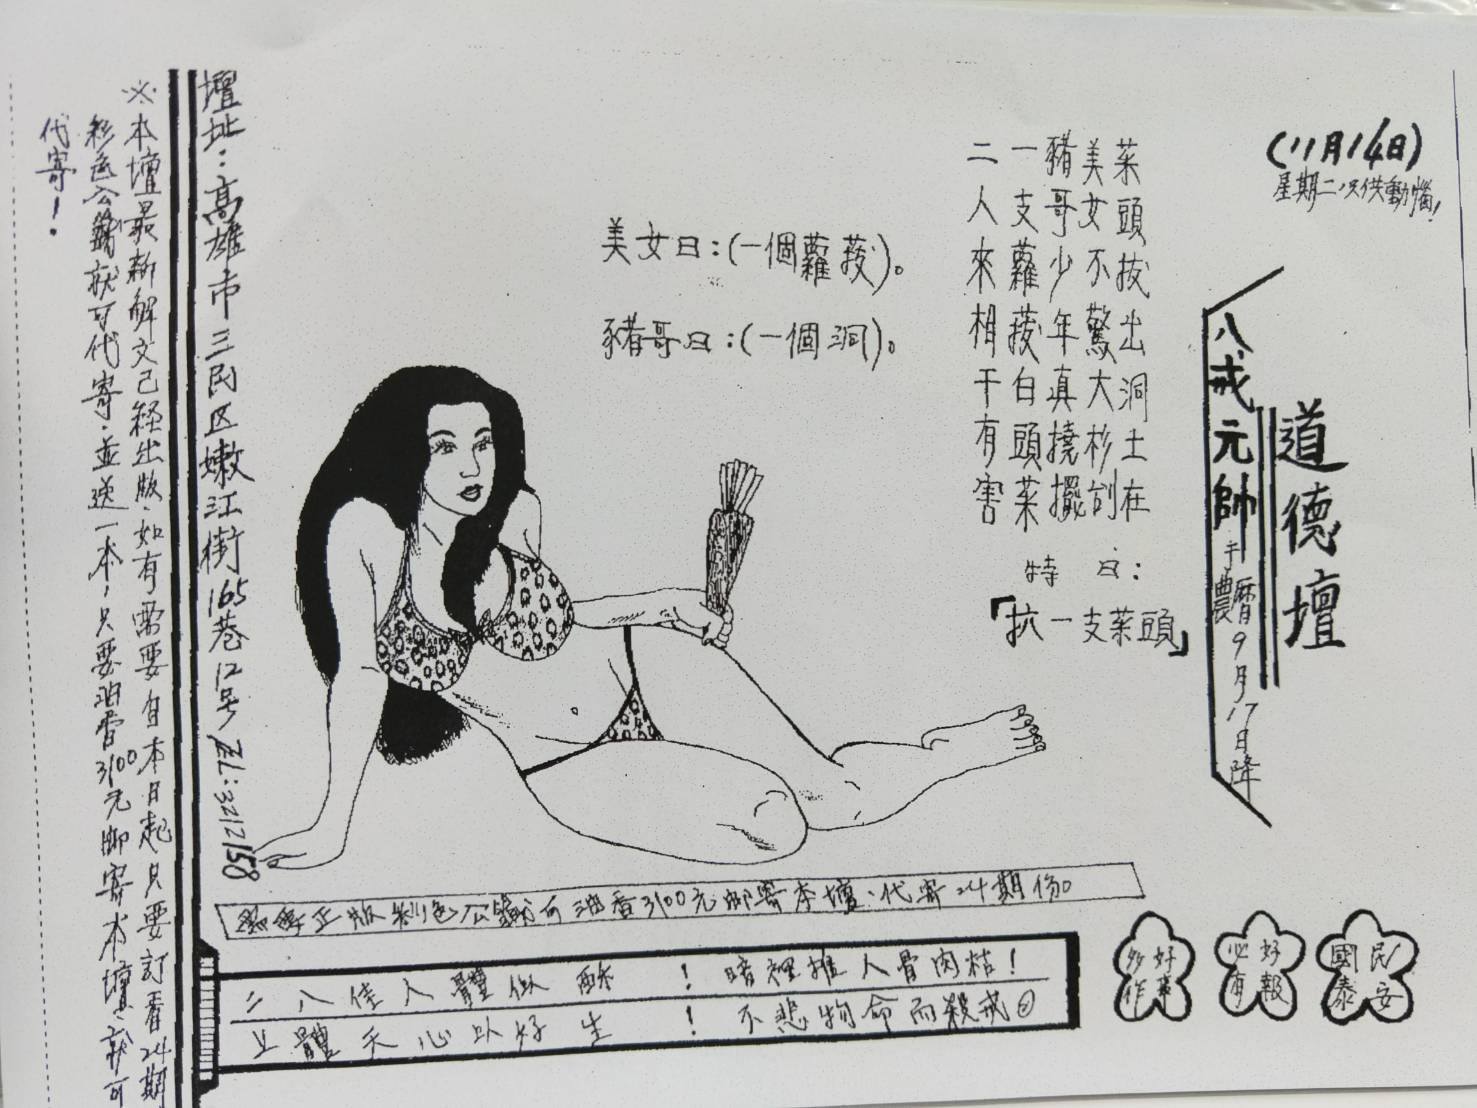 (11月14日)
星期二次供動惱!
道德壇
八戒元帥
手
農曆9月17日降
菜頭拔出洞土在
美女不驚大杉刣
豬哥少年真撓擺
一支蘿蔔白頭菜
二人來相干有害
特曰:
「抗一支菜頭」
美女曰:(一個蘿蔔)。
豬哥曰:(一個洞)。
壇址:高雄市三民区嫩江街165巷12号 TEL:3212158
※本壇最新解文已経出版.如有需要自本日起只要訂看24期
彩色公籤就可代寄.並送一本!只要油香3100元郵寄本壇就可
代寄!
正版彩色公籤 油香3100元郵寄本壇.代寄24期份。
二八佳人體似酥!暗裡推人骨肉枯!
上體天心以好生!不悲物命而殺戒
好事多作
好報必有
民安國泰